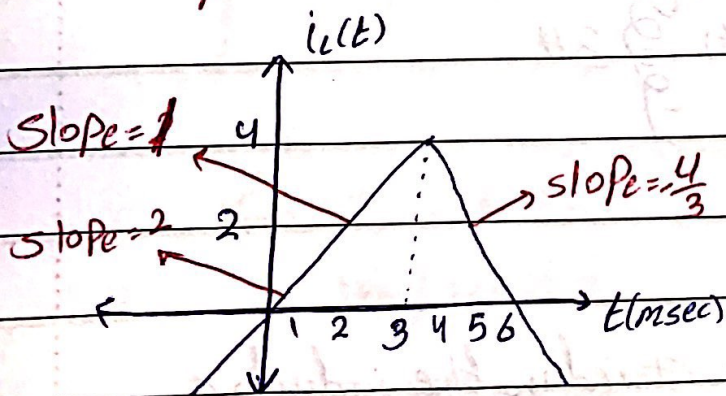 i_L(t)
Slope = 1
4
slope = -4/3
slope = 2
2
1 2 3 4 5 6
t(msec)